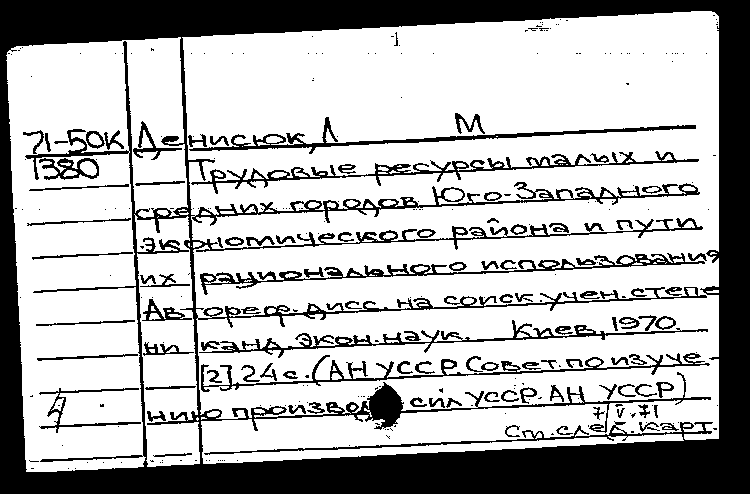 71-50к Денисюк, Л М
1380 Трудовые ресурсы малых и
средних городов Юго-Западного
экономического района и пути
их рационального использования
Автореф. дисс. на соиск. учен. степе
ни канд. экон. наук. Киев, 1970.
[2], 24 с. (АН УССР. Совет. по изуче-
нию производ сил УССР. АН УССР)
7/V.71
См. след. карт.